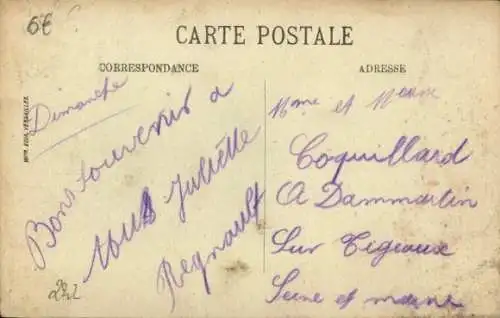 6€
CARTE POSTALE
CORRESPONDANCE
ADRESSE
Dimanche
Bons souvenirs a
tous Juliette
Regnault
Mme et Mr
Coquillard
A Dammartin
Sur Tigeaux
Seine et marne